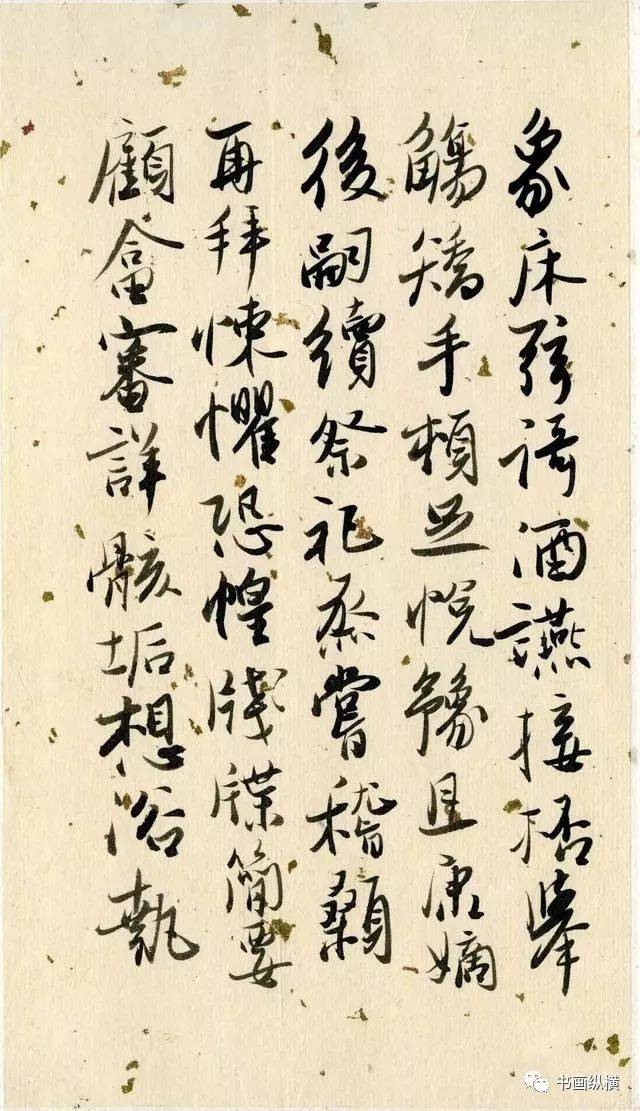 象床弦謌酒讌接桮舉
觴矯手頓足悅豫且康嫡
後嗣續祭祀烝嘗稽顙
再拜悚懼恐惶牋牒簡要
顧畣審詳骸垢想浴執
书画纵横